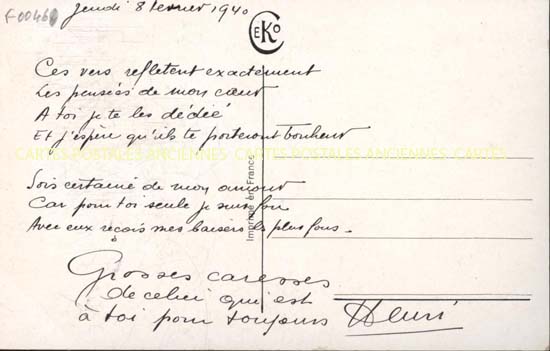 F00460
Jeudi 8 Fevrier 1940
CEKO
Ces vers refletent exactement
Les pensées de mon cœur
A toi je te les dédié
Et j'espère qu'ils te porteront bonheur
CARTES POSTALES ANCIENNES CARTES POSTALES ANCIENNES CARTES
Imprimé en France
Sois certaine de mon amour
Car pour toi seule je suis fou
Avec eux reçois mes baisers les plus fous.
Grosses caresses
de celui qui est
à toi pour toujours Henri